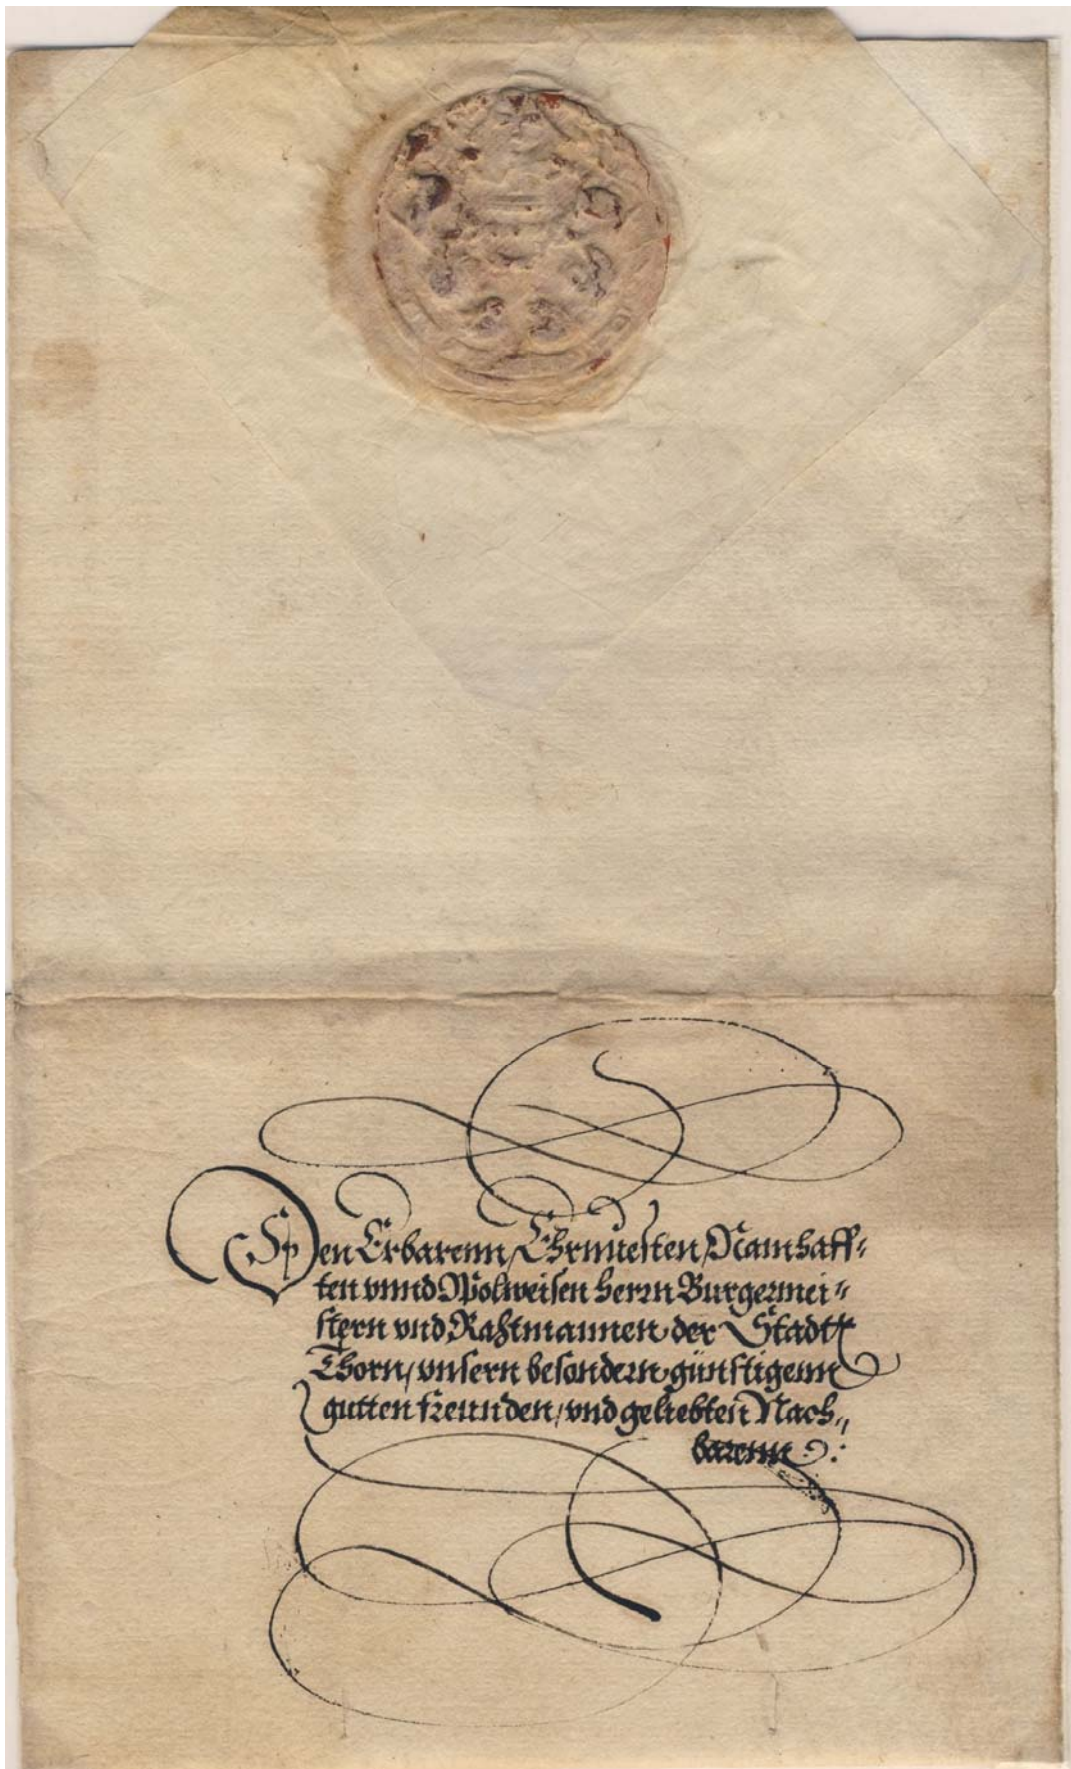 Den Erbarenn, Ehrnuesten, Namhaff-
ten vnnd Wolweisen herrn Burgermei-
stern vnd Rahtmannen der Stadtt
Thorn, vnsern besondern günstigenn
gutten freunden, vnd geliebten Nach-
barenn :